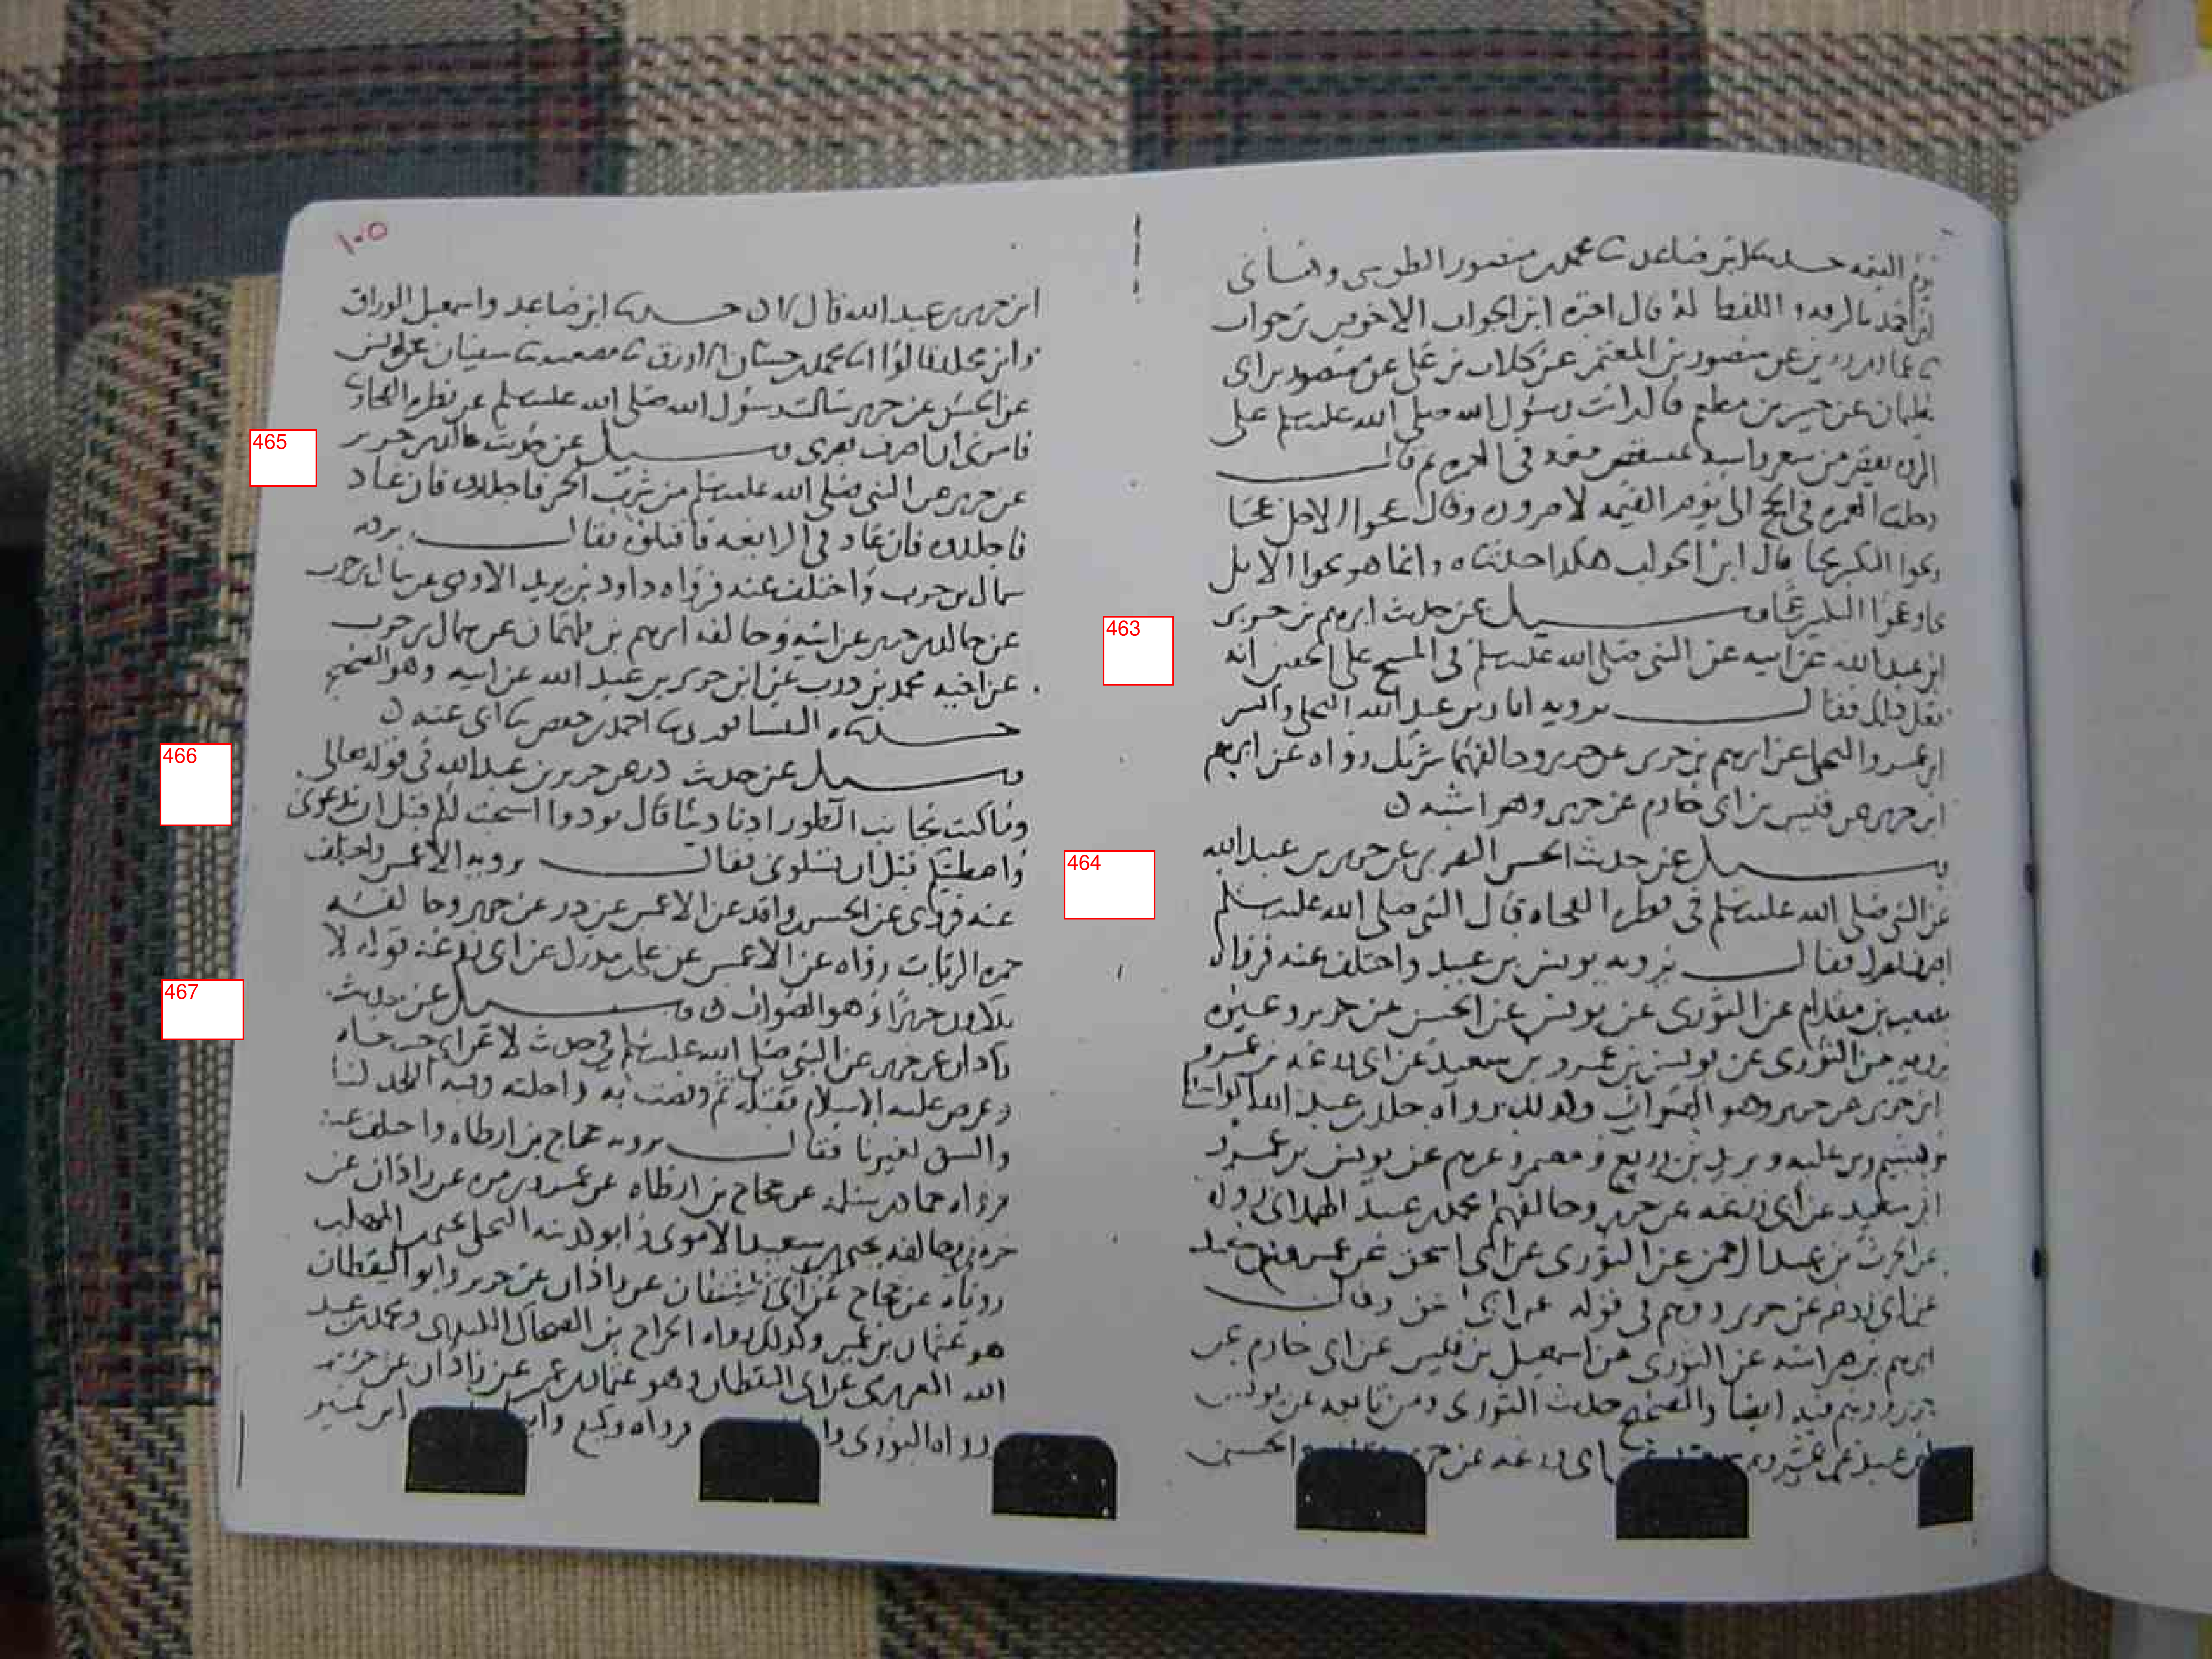 يوم القيمه حدثنا ابن صاعد ثنا محمد بن منصور الطوسي
قال اخبره ابن الجواب الاحوص بن جواب
عن منصور بن المعتمر عن كلاب بن علي عن منصور بن ابي
سليمان عن جبير بن مطعم قال رايت رسول الله صلى الله عليه وسلم على
المروه يقصر من شعر راسه بمشقص معه في العمره ثم قال
دخلت العمره في الحج الى يوم القيمه لا صرورة وقال عجوا الابل عجا
وثجوا قال ابن الجواب هكذا حدثناه وانما هو ثجوا الابل
وسيل عن حديث ابرهيم بن جرير
ابن عبد الله عن ابيه عن النبي صلى الله عليه وسلم في المسح على الخفين انه
فعل ذلك فقال يرويه ابان بن عبد الله البجلي
البجلي عن ابرهيم بن جرير عن جرير وخالفهما شريك رواه عن ابرهيم
ابن جرير عن قيس بن ابي حازم عن جرير وهو اشبه
وسيل عن حديث الحسن البصري عن جرير بن عبد الله
عن النبي صلى الله عليه وسلم في نظره الفجاه قال النبي صلى الله عليه وسلم
فقال يرويه يونس بن عبيد واختلف عنه فرواه
مصعب بن مقدام عن الثوري عن يونس عن الحسن عن جرير وغيره
يرويه عن الثوري عن يونس عن عمرو بن سعيد عن ابي زرعه بن عمرو
ابن جرير عن جرير وهو الصواب وكذلك رواه خالد بن عبد الله الواسطي
وهشيم وبن عليه ويزيد بن زريع ومعمر وغيرهم عن يونس عن عمرو
ابن سعيد عن ابي زرعه عن جرير وخالفهم محمد بن عبيد الهمداني رواه
عن الحرث بن عبد الرحمن عن الثوري عن ابي اسحق عن عمرو بن سعيد
عن ابي زرعه عن جرير ووهم في قوله عن ابي اسحق وقال
ابرهيم بن هراسه عن الثوري عن اسمعيل عن قيس بن ابي حازم عن
جرير ووهم فيه ايضا والصحيح حديث الثوري ومن تابعه عن يونس
ابن عبيد عن عمرو ابي زرعه عن جرير الحسن
١٠٥
ابن جرير بن عبد الله قال حدثنا ابن صاعد واسمعيل الوراق
وابن مخلد قالوا ثنا محمد بن حسان الازرق ثنا مصعب ثنا سفيان عن يونس
عن الحسن عن جرير سالت رسول الله صلى الله عليه وسلم عن نظره الفجاه
فامرني ان اصرف بصري وسيل عن حديث خالد بن جرير
عن جرير عن النبي صلى الله عليه وسلم من شرب الخمر فاجلدوه فان عاد
فاجلدوه فان عاد في الرابعه فاقتلوه فقال يرويه
سماك بن حرب واختلف عنه فرواه داود بن يزيد الاودي عن سماك بن حرب
عن خالد بن جرير عن ابيه وخالفه ابرهيم بن طهمان عن سماك بن حرب
عن اخيه محمد بن حرب عن ابن جرير بن عبد الله عن ابيه وهو الصحيح
حدثناه النيسابوري ثنا احمد بن حفص ثنا ابي عنه
وسيل عن حديث زر عن جرير بن عبد الله في قوله تعالى
وما كنت بجانب الطور اذ نادينا قال نودوا استجبت لكم قبل ان تدعوني
واعطيتكم قبل ان تسلوني فقال يرويه الاعمش واختلف
عنه فروى عن الحسين بن واقد عن الاعمش عن زر عن جرير وخالفه
حمزه الزيات رواه عن الاعمش عن علي بن مدرك عن ابي زرعه قوله لا
يذكرون جريرا وهو الصواب وسيل عن حديث
زاذان عن جرير عن النبي صلى الله عليه وسلم في حديث الاعرابي حين جاه
وعرض عليه الاسلام فقبله ثم وقصت به راحلته وفيه اللحد لنا
والشق لغيرنا فقال يرويه حجاج بن ارطاه واختلف عنه
فرواه حماد بن سلمه عن حجاج بن ارطاه عن عمرو بن مره عن زاذان عن
جرير وخالفه يحيى بن سعيد الاموي
روياه عن حجاج عن ابي اليقظان عن زاذان عن جرير وابو اليقظان
هو عثمان بن عمير وكذلك رواه الجراح بن الضحاك الكندي ومحمد بن عبيد
الله العرزمي عن ابي اليقظان وهو عثمان بن عمير عن زاذان عن جرير
ورواه الثوري فرواه وكيع ابن نمير
465
466
467
463
464